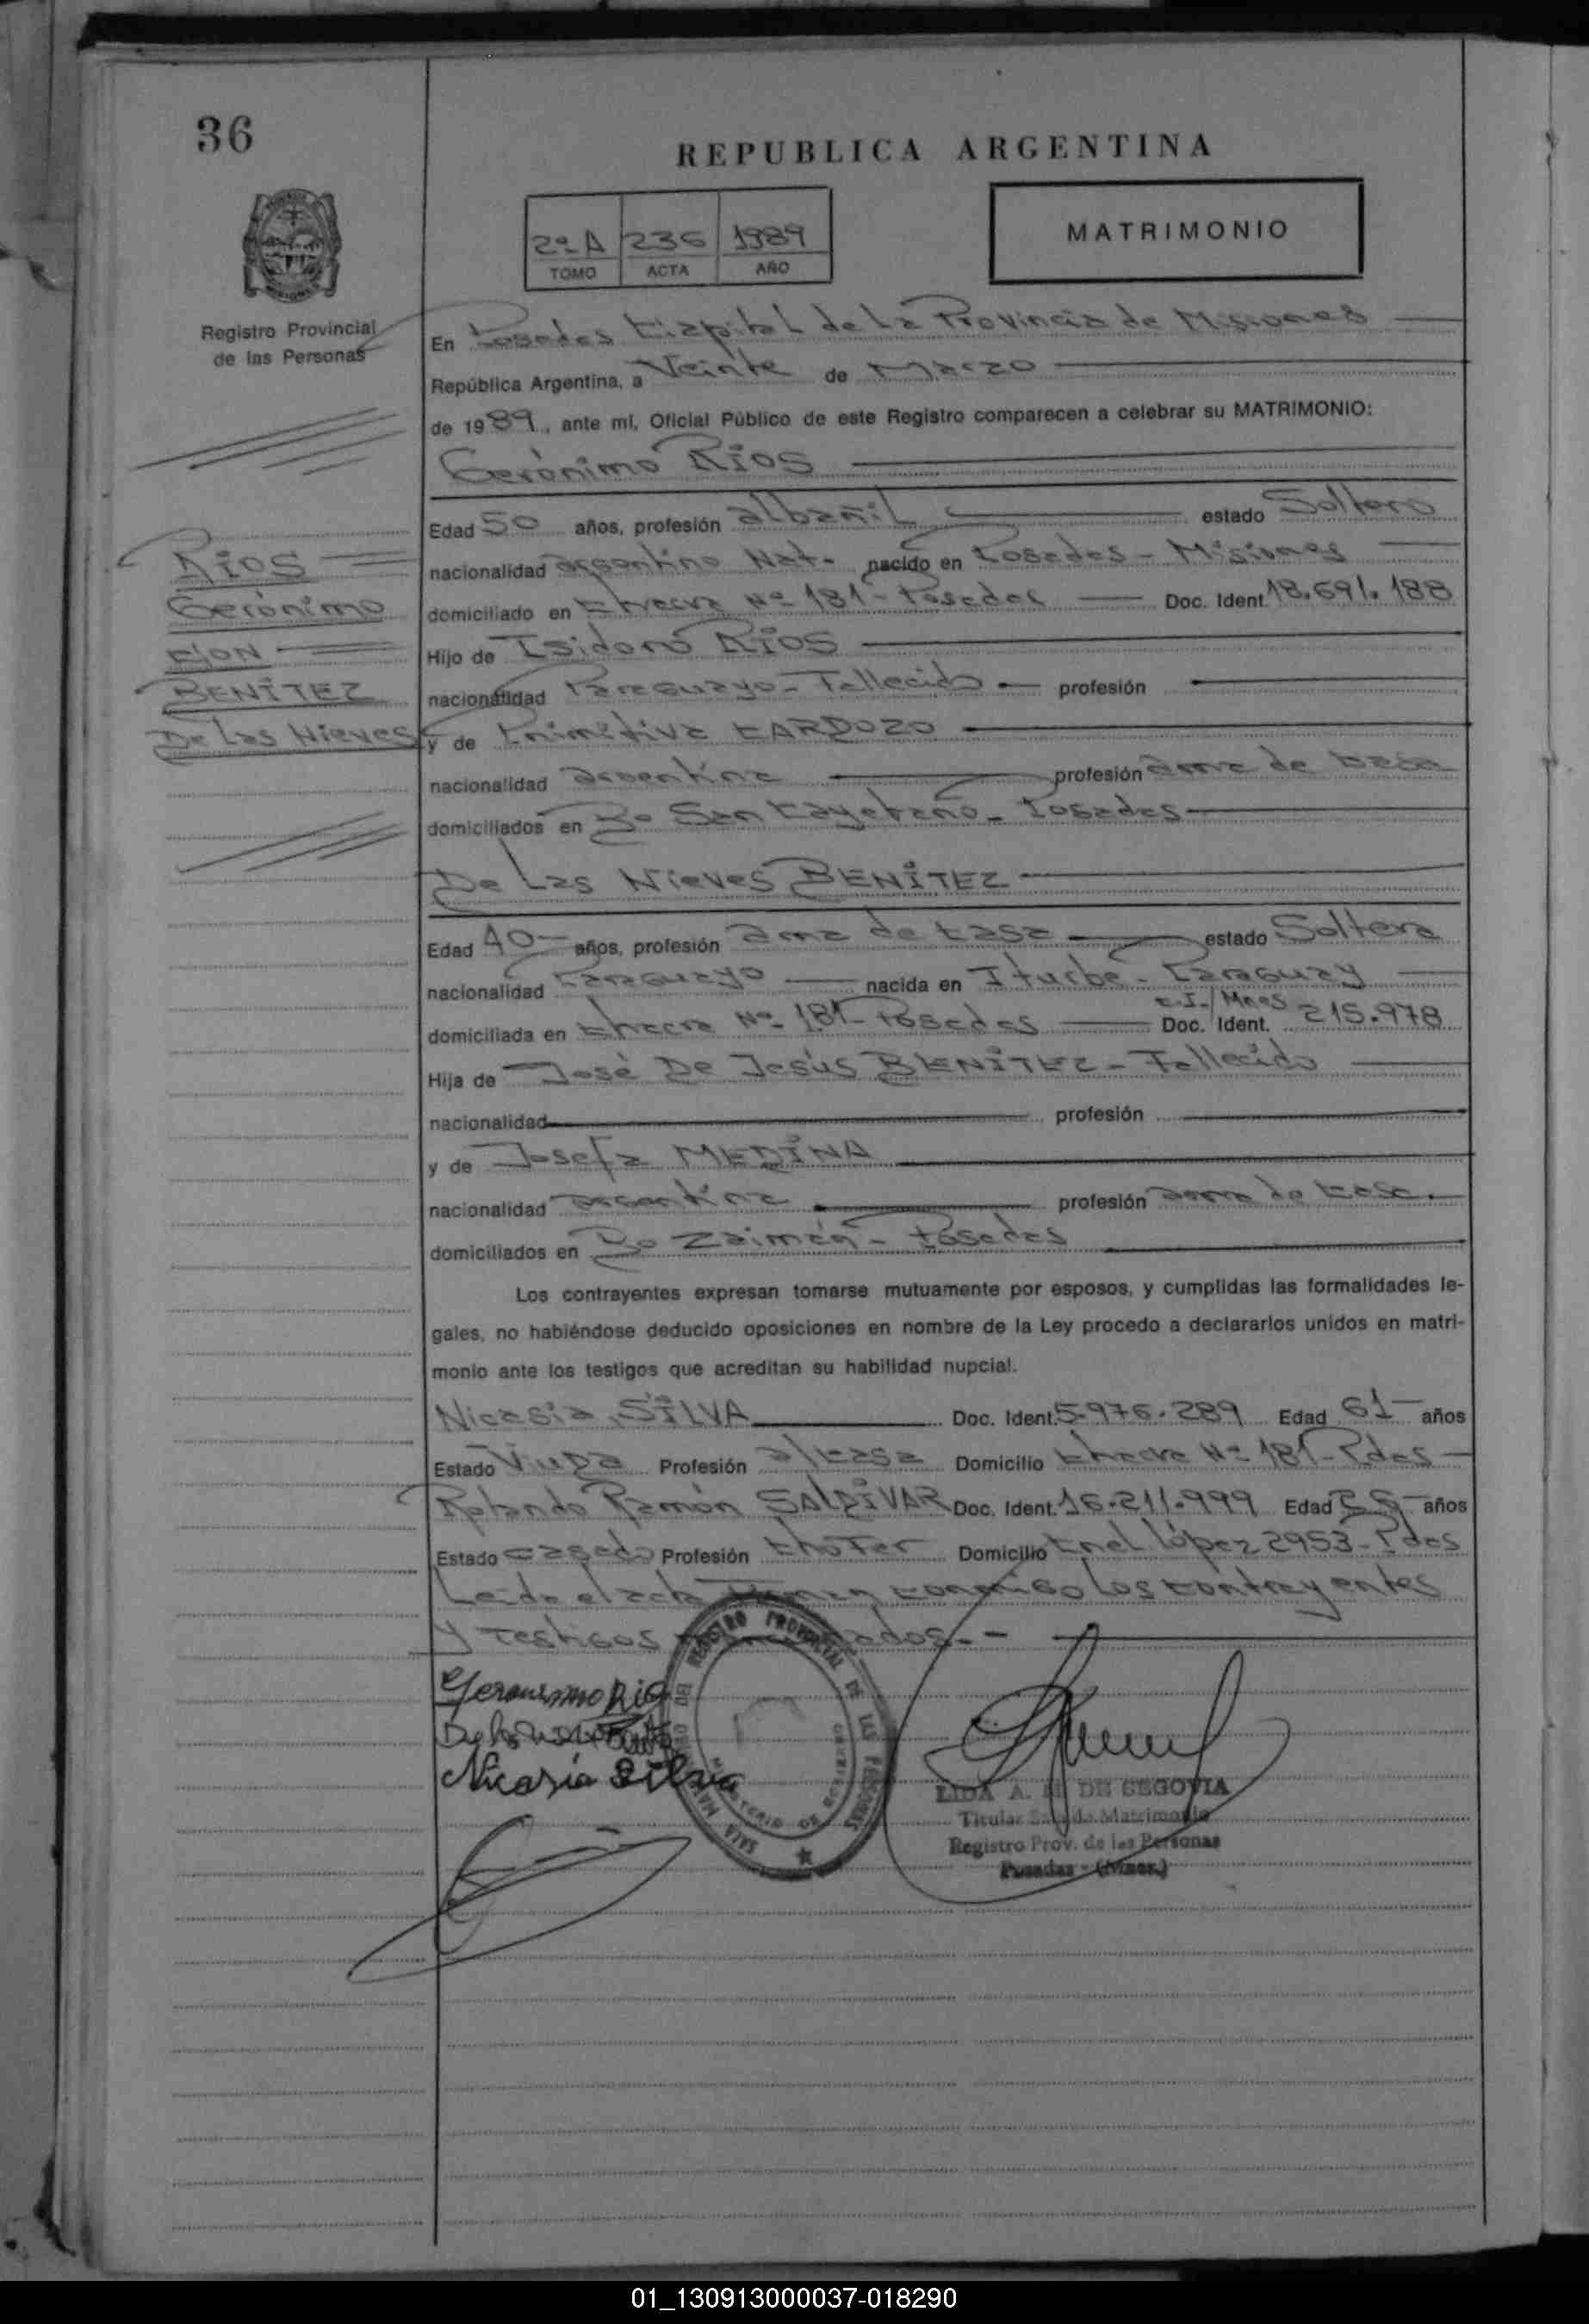 36
REPUBLICA ARGENTINA
2ºA 236 1989
TOMO ACTA AÑO
MATRIMONIO
Registro Provincial
de las Personas
En Posadas Capital de La Provincia de Misiones
República Argentina, a Veinte de Marzo
de 1989, ante mí, Oficial Público de este Registro comparecen a celebrar su MATRIMONIO:
Gerónimo RÍOS
Edad 50 años, profesión albañil estado Soltero
RÍOS
Gerónimo
CON
BENÍTEZ
De Las Nieves
nacionalidad argentino Nat. nacido en Posadas - Misiones
domiciliado en Chacra Nº 181 - Posadas Doc. Ident. 18.691.188
Hijo de Isidoro RÍOS
nacionalidad Paraguayo - Fallecido - profesión
y de Primitiva CARDOZO
nacionalidad argentina profesión ama de casa
domiciliados en Bº San Cayetano - Posadas
De Las Nieves BENÍTEZ
Edad 40 años, profesión ama de casa estado Soltera
nacionalidad Paraguayo nacida en Iturbe - Paraguay
domiciliada en Chacra Nº 181 - Posadas C.I./Mnes Doc. Ident. 215.978
Hija de José De Jesús BENÍTEZ - Fallecido
nacionalidad profesión
y de Josefa MEDINA
nacionalidad argentina profesión ama de casa.
domiciliados en Bº Zaimán - Posadas
Los contrayentes expresan tomarse mutuamente por esposos, y cumplidas las formalidades le-
gales, no habiéndose deducido oposiciones en nombre de la Ley procedo a declararlos unidos en matri-
monio ante los testigos que acreditan su habilidad nupcial.
Nicasia SILVA Doc. Ident. 5.976.289 Edad 61 años
Estado Viuda Profesión a/casa Domicilio Chacra Nº 181 - Pdas
Rolando Ramón SALDIVAR Doc. Ident. 16.211.999 Edad años
Estado casado Profesión Chofer Domicilio Cnel. López 2953 - Pdas
Leída el acta Firman conmigo los contrayentes
y Testigos
Geronimo Rio
Nicasia Silva
REGISTRO PROVINCIAL DE LAS PERSONAS
MINISTERIO DE
LIDA A. M. DE SEGOVIA
Titular Sala de Matrimonio
Registro Prov. de las Personas
Posadas - (Mnes.)
01_130913000037-018290